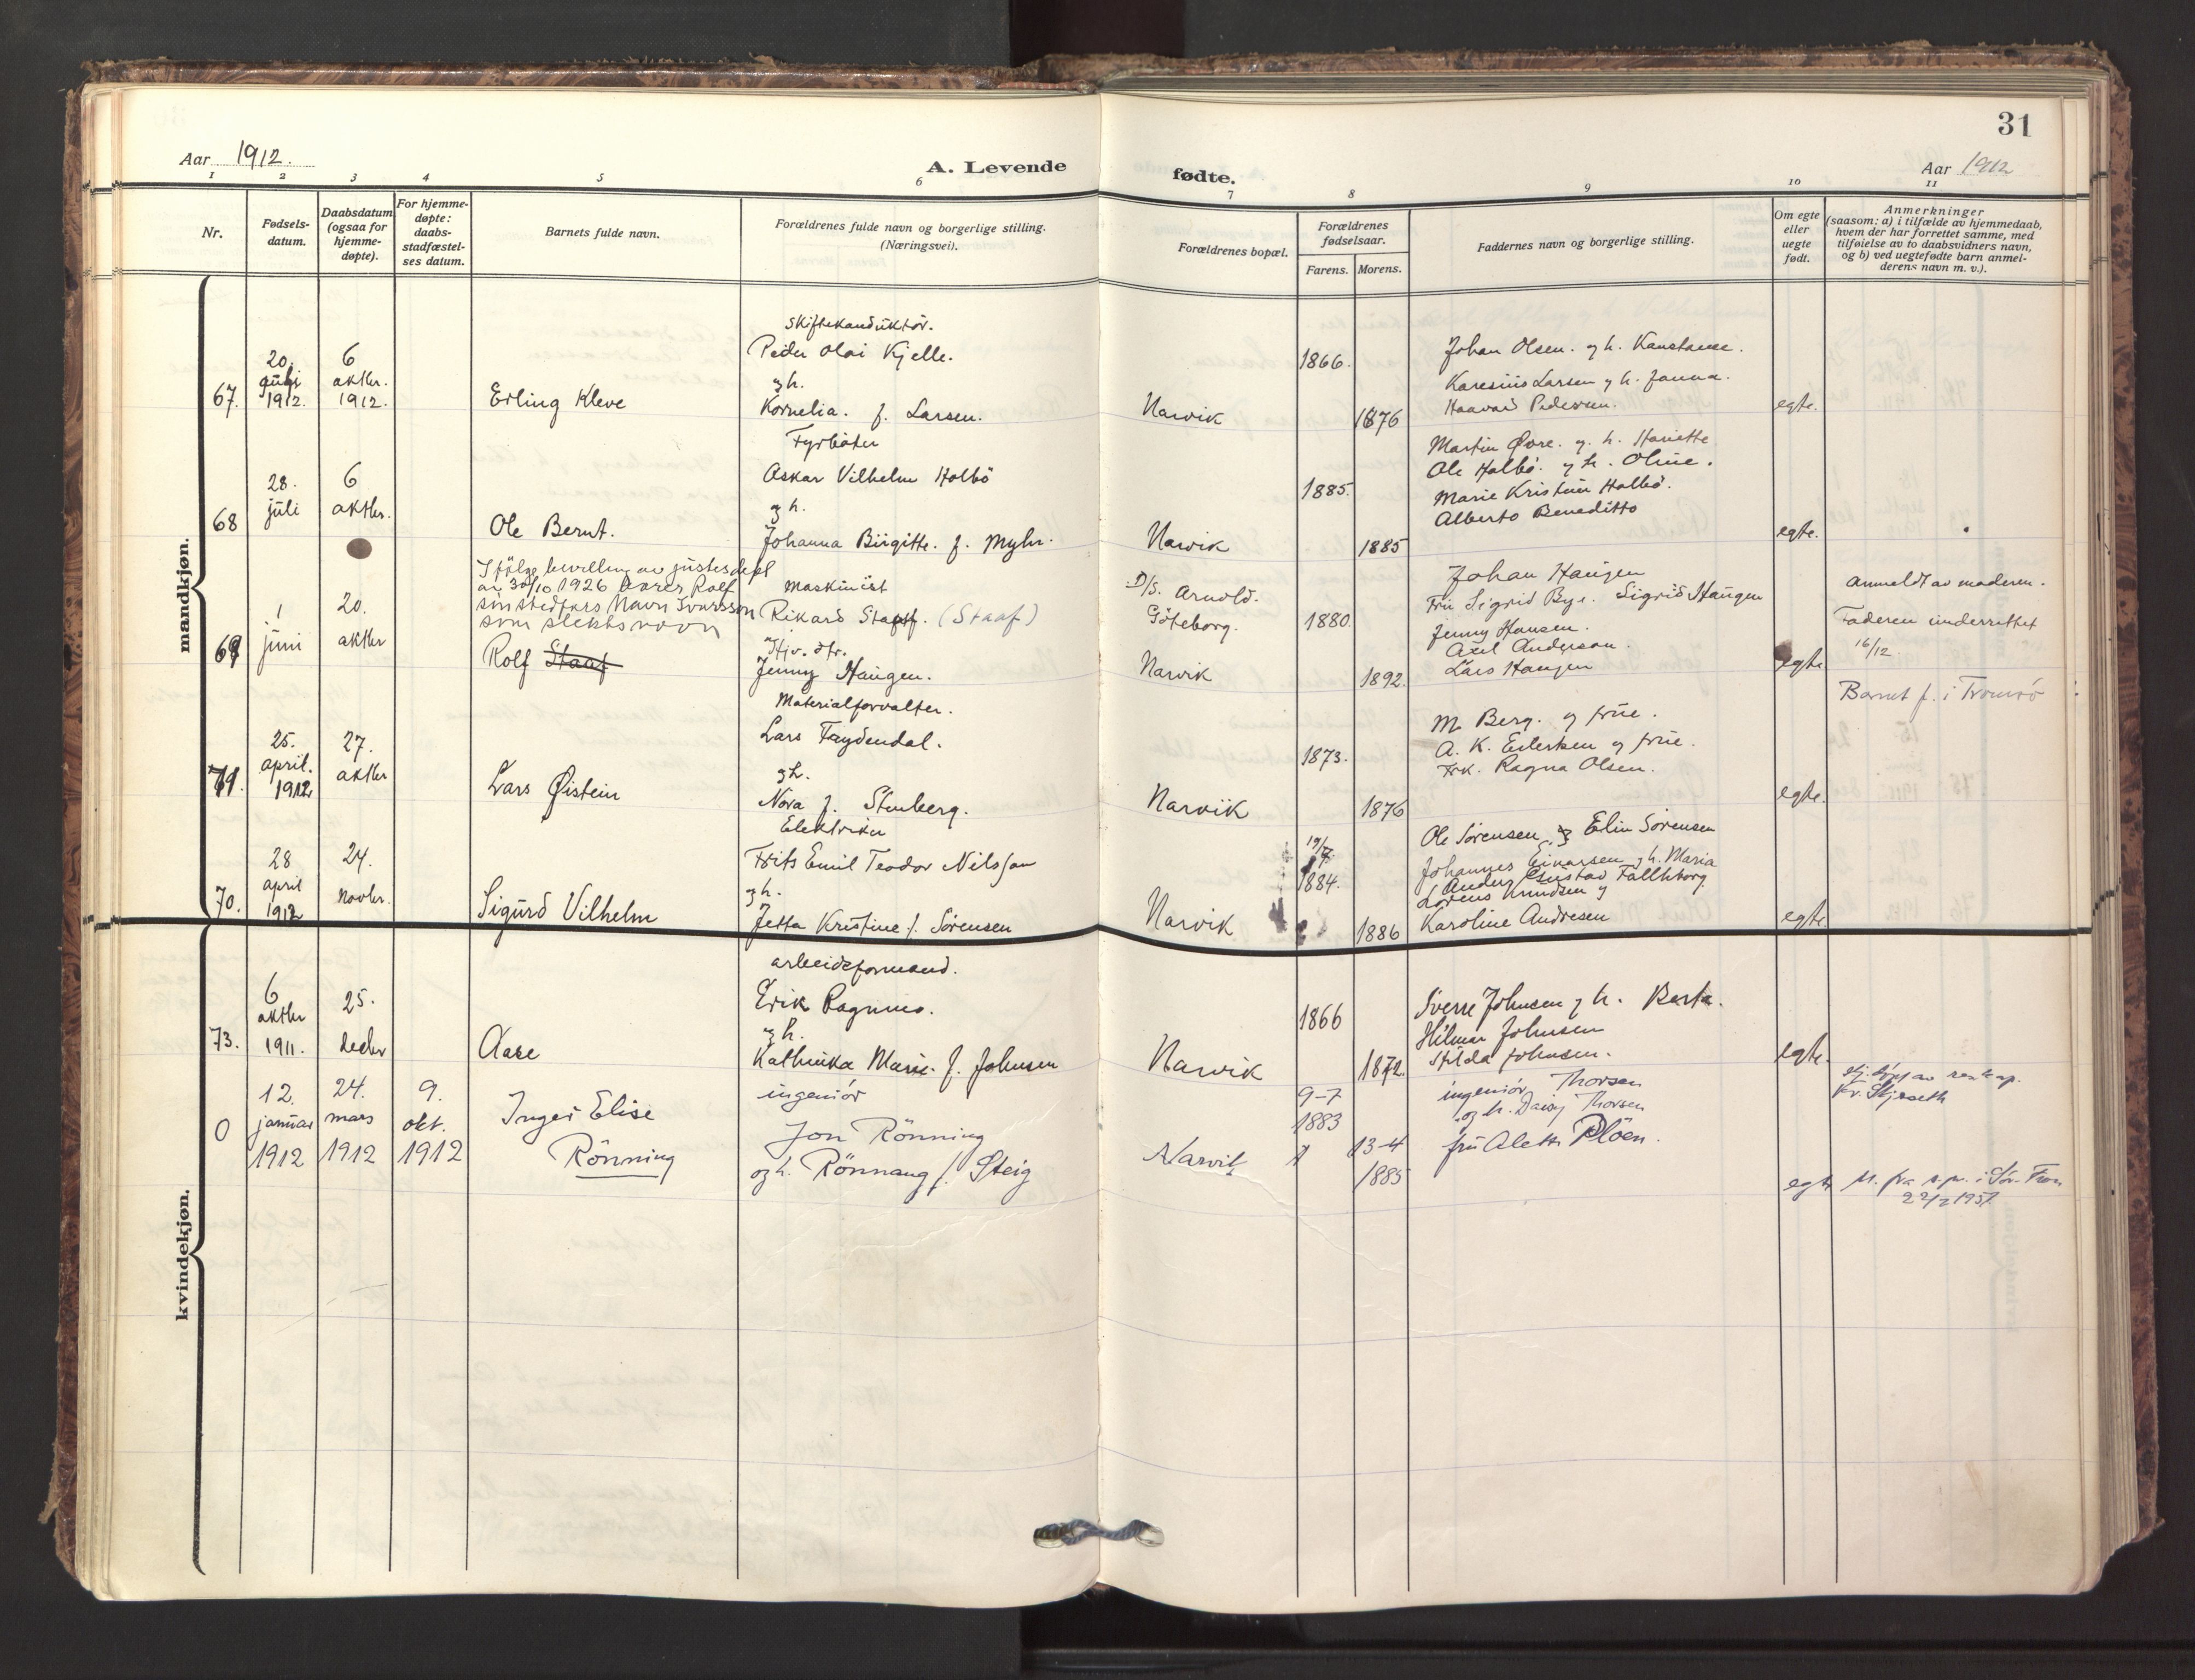 31
Aar 1912.
A. Levende fødte.
Aar 1912
1 2 3 4 5 6 7 8 9 10 11
Nr.
Fødsels-
datum.
Daabsdatum
(ogsaa for
hjemme-
døpte).
For hjemme-
døpte:
daabs-
stadfæstel-
ses datum.
Barnets fulde navn.
Forældrenes fulde navn og borgerlige stilling.
(Næringsvei).
Forældrenes bopæl.
Forældrenes
fødselsaar.
Farens. Morens.
Faddernes navn og borgerlige stilling.
Om egte
eller
uegte
født.
Anmerkninger
(saasom: a) i tilfælde av hjemmedaab,
hvem der har forrettet samme, med
tilføielse av to daabsvidners navn,
og b) ved uegtefødte barn anmel-
derens navn m. v.).
mandkjøn.
67.
20.
juli
1912.
6
oktbr.
1912.
Erling Kleve
Skiftekonduktör.
Peder Olai Kjelle.
og h.
Kornelia. f. Larsen.
Narvik
1866.
1876
Johan Olsen. og h. Konstanse.
Karesius Larsen og h. Janna.
Haavard Pedersen.
egte.
68
28.
juli
6
oktbr.
Ole Bernt.
Fyrböter
Oskar Vilhelm Holbö
og h.
Johanna Birgitte. f. Myhr.
Narvik
1885.
1885
Martin Øvre. og h. Hariette
Ole Holbö. og h. Oline.
Marie Kristine Holbö.
Alberto Beneditto
egte.
69
1
juni
20.
oktbr
I følge bevilling av justisdept
av 30/10 1926 bærer Rolf
sin stedfars Navn Ivarsson
som slektsnavn
Rolf Staaf
Maskinist
Rikard Staaf. (Staaf)
og
Hjv. dtr.
Jenny Haugen.
D/S. Arnold.
Göteborg.
Narvik
1880.
1892.
Johan Haugen
Fru Sigrid Bye. Sigrid Haugen
Jenny Hansen.
Axel Anderson.
Lars Haugen
egte
Anmeldt av moderen.
Faderen underrettet
16/12.
Barnet f. i Tromsö
71.
25.
april.
1912
27.
oktbr
Lars Øistein
Materialforvalter.
Lars Faydendal.
og h.
Nora f. Stenberg.
Narvik
1873.
1876
M Berg. og frue.
A. K. Eilertsen og frue.
Frk. Ragna Olsen.
egte.
70.
28
april
1912
24.
novbr.
Sigurd Vilhelm
Elektriker
Frits Emil Teodor Nilsson
og h.
Jetta Kristine f. Sörensen
Narvik
19/7
1884.
1886
Ole Sörensen, og Elin Sörensen
Johannes Eivarsen og h. Maria
Anders Gustav Falkborg.
Lorens Knudsen og
Karoline Andresen
egte.
kvindekjøn.
73.
6
oktbr
1911.
25.
decbr
Aase
arbeidsformand.
Erik Ragnmo.
og h.
Kathinka Marie. f. Johnsen
Narvik
1866
1872.
Sverre Johnsen og h. Berta.
Hilmar Johnsen
Hilda Johnsen.
egte.
0
12.
januar
1912
24.
mars
1912
9.
okt.
1912
Inger Elise
Rönning
ingeniör
Jon Rönning
og h. Rönnaug f. Steig
Narvik
9-7
1883
13-4
1885
ingeniör Thorsen
og h. Daisy Thorsen
fru Aleth Plöen.
egte
hj.döpt av res. kap.
Kr. Skjeseth
M. fra s.pr. i Sör-Fron
22/2 1957